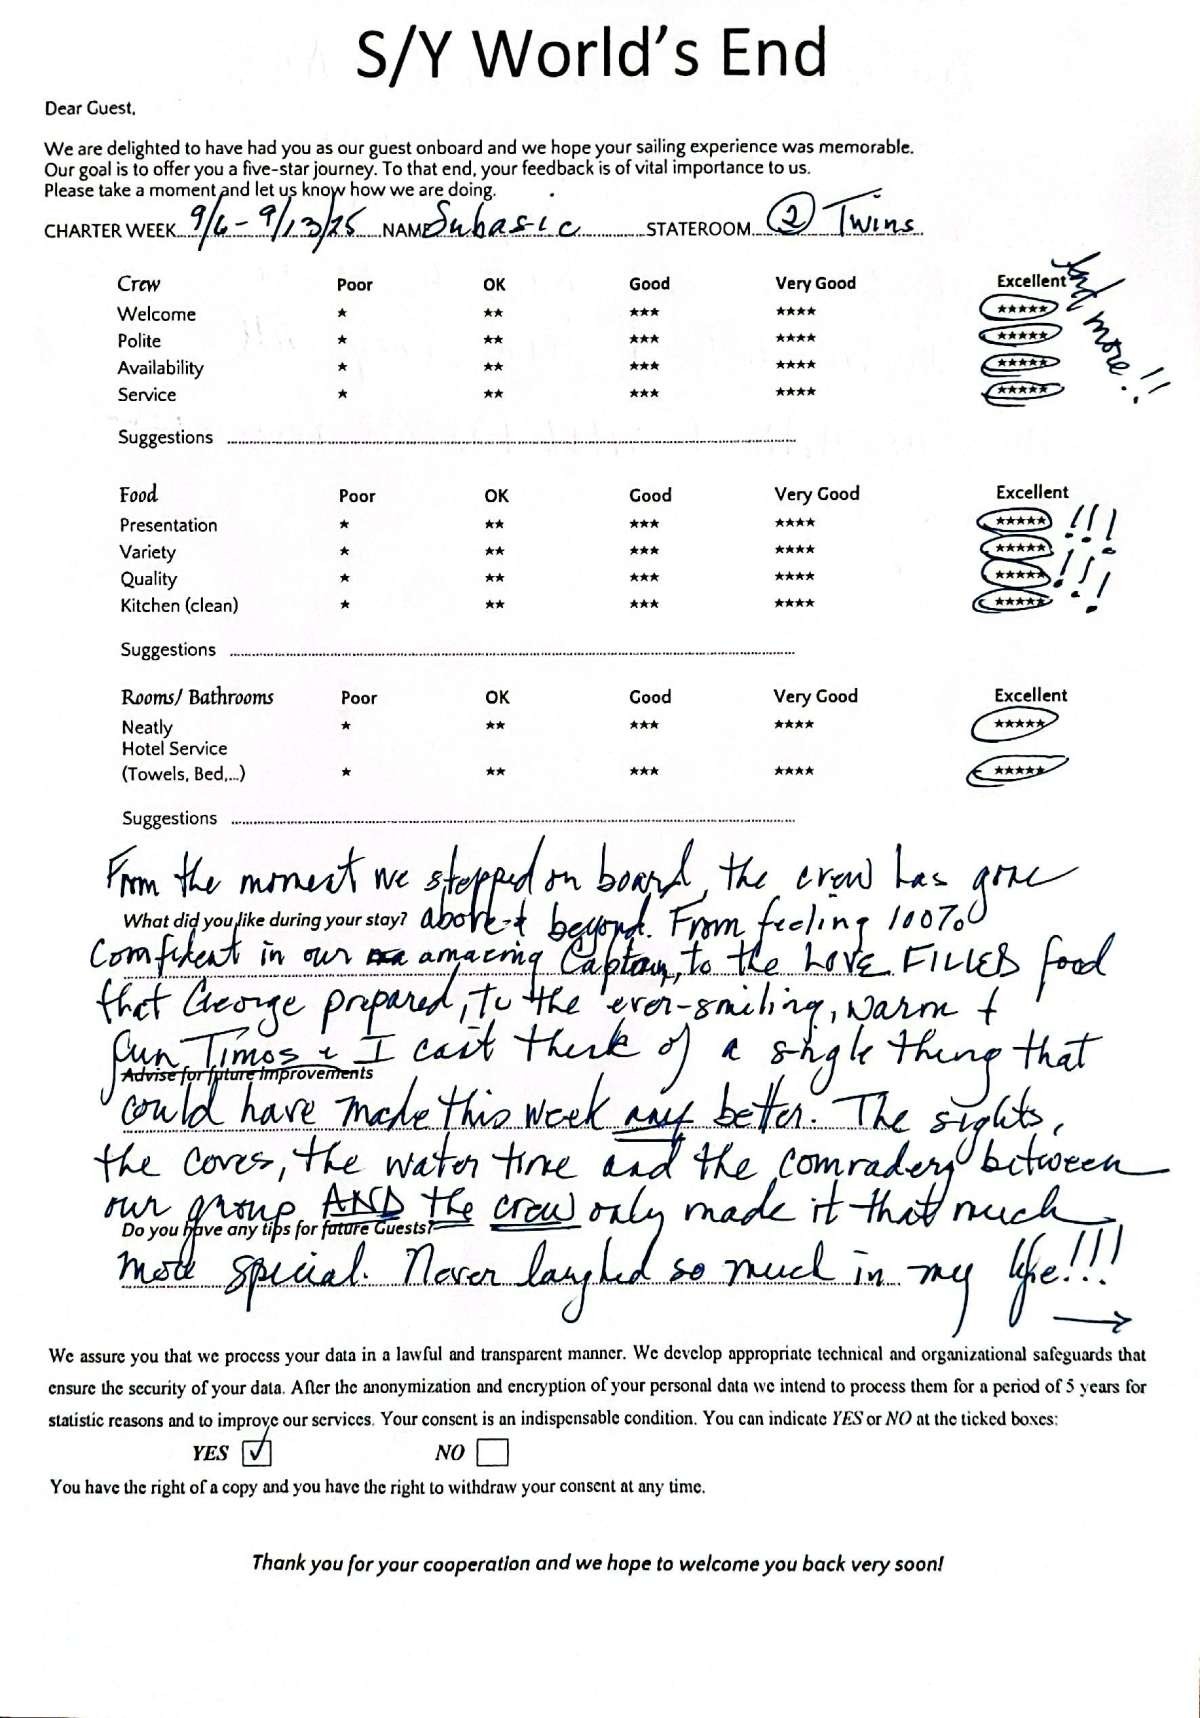 S/Y World's End
Dear Guest,
We are delighted to have had you as our guest onboard and we hope your sailing experience was memorable.
Our goal is to offer you a five-star journey. To that end, your feedback is of vital importance to us.
Please take a moment and let us know how we are doing.
CHARTER WEEK 9/6 - 9/13/25 NAME Subasic STATEROOM 2 Twins
Crew Poor OK Good Very Good Excellent
Welcome ★ ★★ ★★★ ★★★★ ★★★★★
Polite ★ ★★ ★★★ ★★★★ ★★★★★
Availability ★ ★★ ★★★ ★★★★ ★★★★★
Service ★ ★★ ★★★ ★★★★ ★★★★★
And more!!
Suggestions
Food Poor OK Good Very Good Excellent
Presentation ★ ★★ ★★★ ★★★★ ★★★★★ !!!
Variety ★ ★★ ★★★ ★★★★ ★★★★★
Quality ★ ★★ ★★★ ★★★★ ★★★★★ !!!
Kitchen (clean) ★ ★★ ★★★ ★★★★ ★★★★★
Suggestions
Rooms/ Bathrooms Poor OK Good Very Good Excellent
Neatly ★ ★★ ★★★ ★★★★ ★★★★★
Hotel Service
(Towels, Bed,...) ★ ★★ ★★★ ★★★★ ★★★★★
Suggestions
From the moment we stepped on board, the crew has gone
What did you like during your stay? above + beyond. From feeling 100%
confident in our amazing Captain, to the LOVE FILLED food
that George prepared, to the ever-smiling, warm +
fun Timos & I can't think of a single thing that
Advise for future improvements
could have made this week any better. The sights,
the coves, the water time and the comradery between
our group AND the crew only made it that much
Do you have any tips for future Guests?
more special. Never laughed so much in my life!!!
→
We assure you that we process your data in a lawful and transparent manner. We develop appropriate technical and organizational safeguards that
ensure the security of your data. After the anonymization and encryption of your personal data we intend to process them for a period of 5 years for
statistic reasons and to improve our services. Your consent is an indispensable condition. You can indicate YES or NO at the ticked boxes:
YES ☑ NO ☐
You have the right of a copy and you have the right to withdraw your consent at any time.
Thank you for your cooperation and we hope to welcome you back very soon!